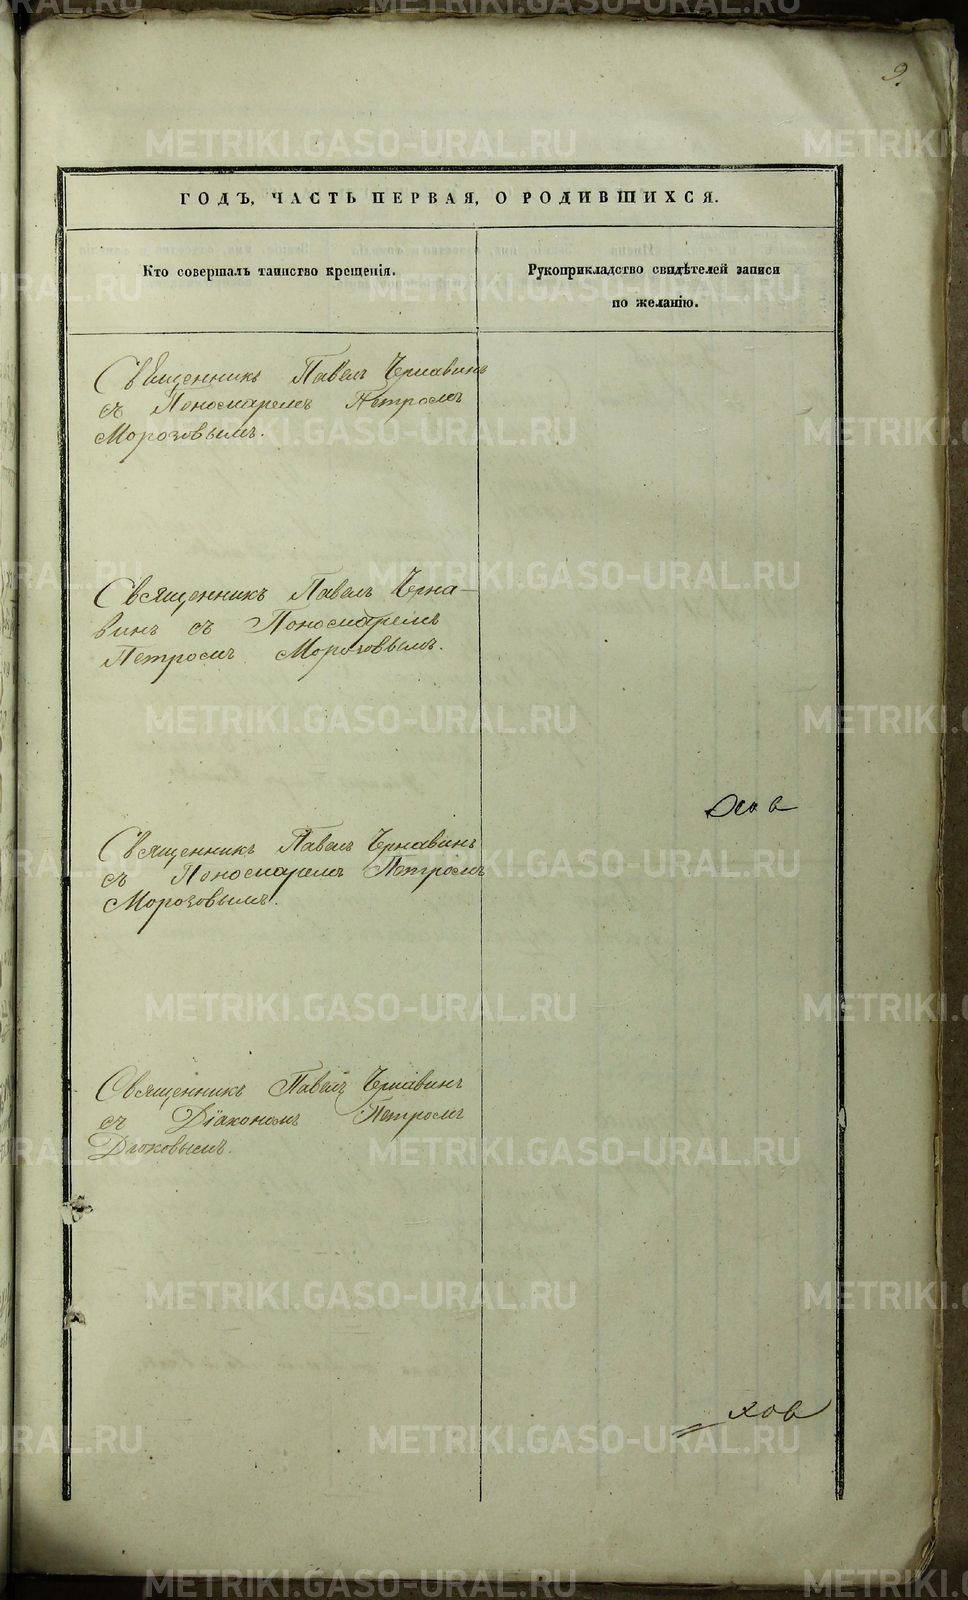 9.
ГОДЪ, ЧАСТЬ ПЕРВАЯ, О РОДИВШИХСЯ.
Кто совершалъ таинство крещенія.
Рукоприкладство свидѣтелей записи
по желанію.
Священникъ Павелъ Чернавинъ
съ Пономаремъ Петромъ
Морозовымъ.
Священникъ Павелъ Черна-
винъ съ Пономаремъ
Петромъ Морозовымъ.
Священникъ Павелъ Чернавинъ
съ Пономаремъ Петромъ
Морозовымъ.
Священникъ Павелъ Чернавинъ
съ Діакономъ Петромъ
ховъ
METRIKI.GASO-URAL.RU